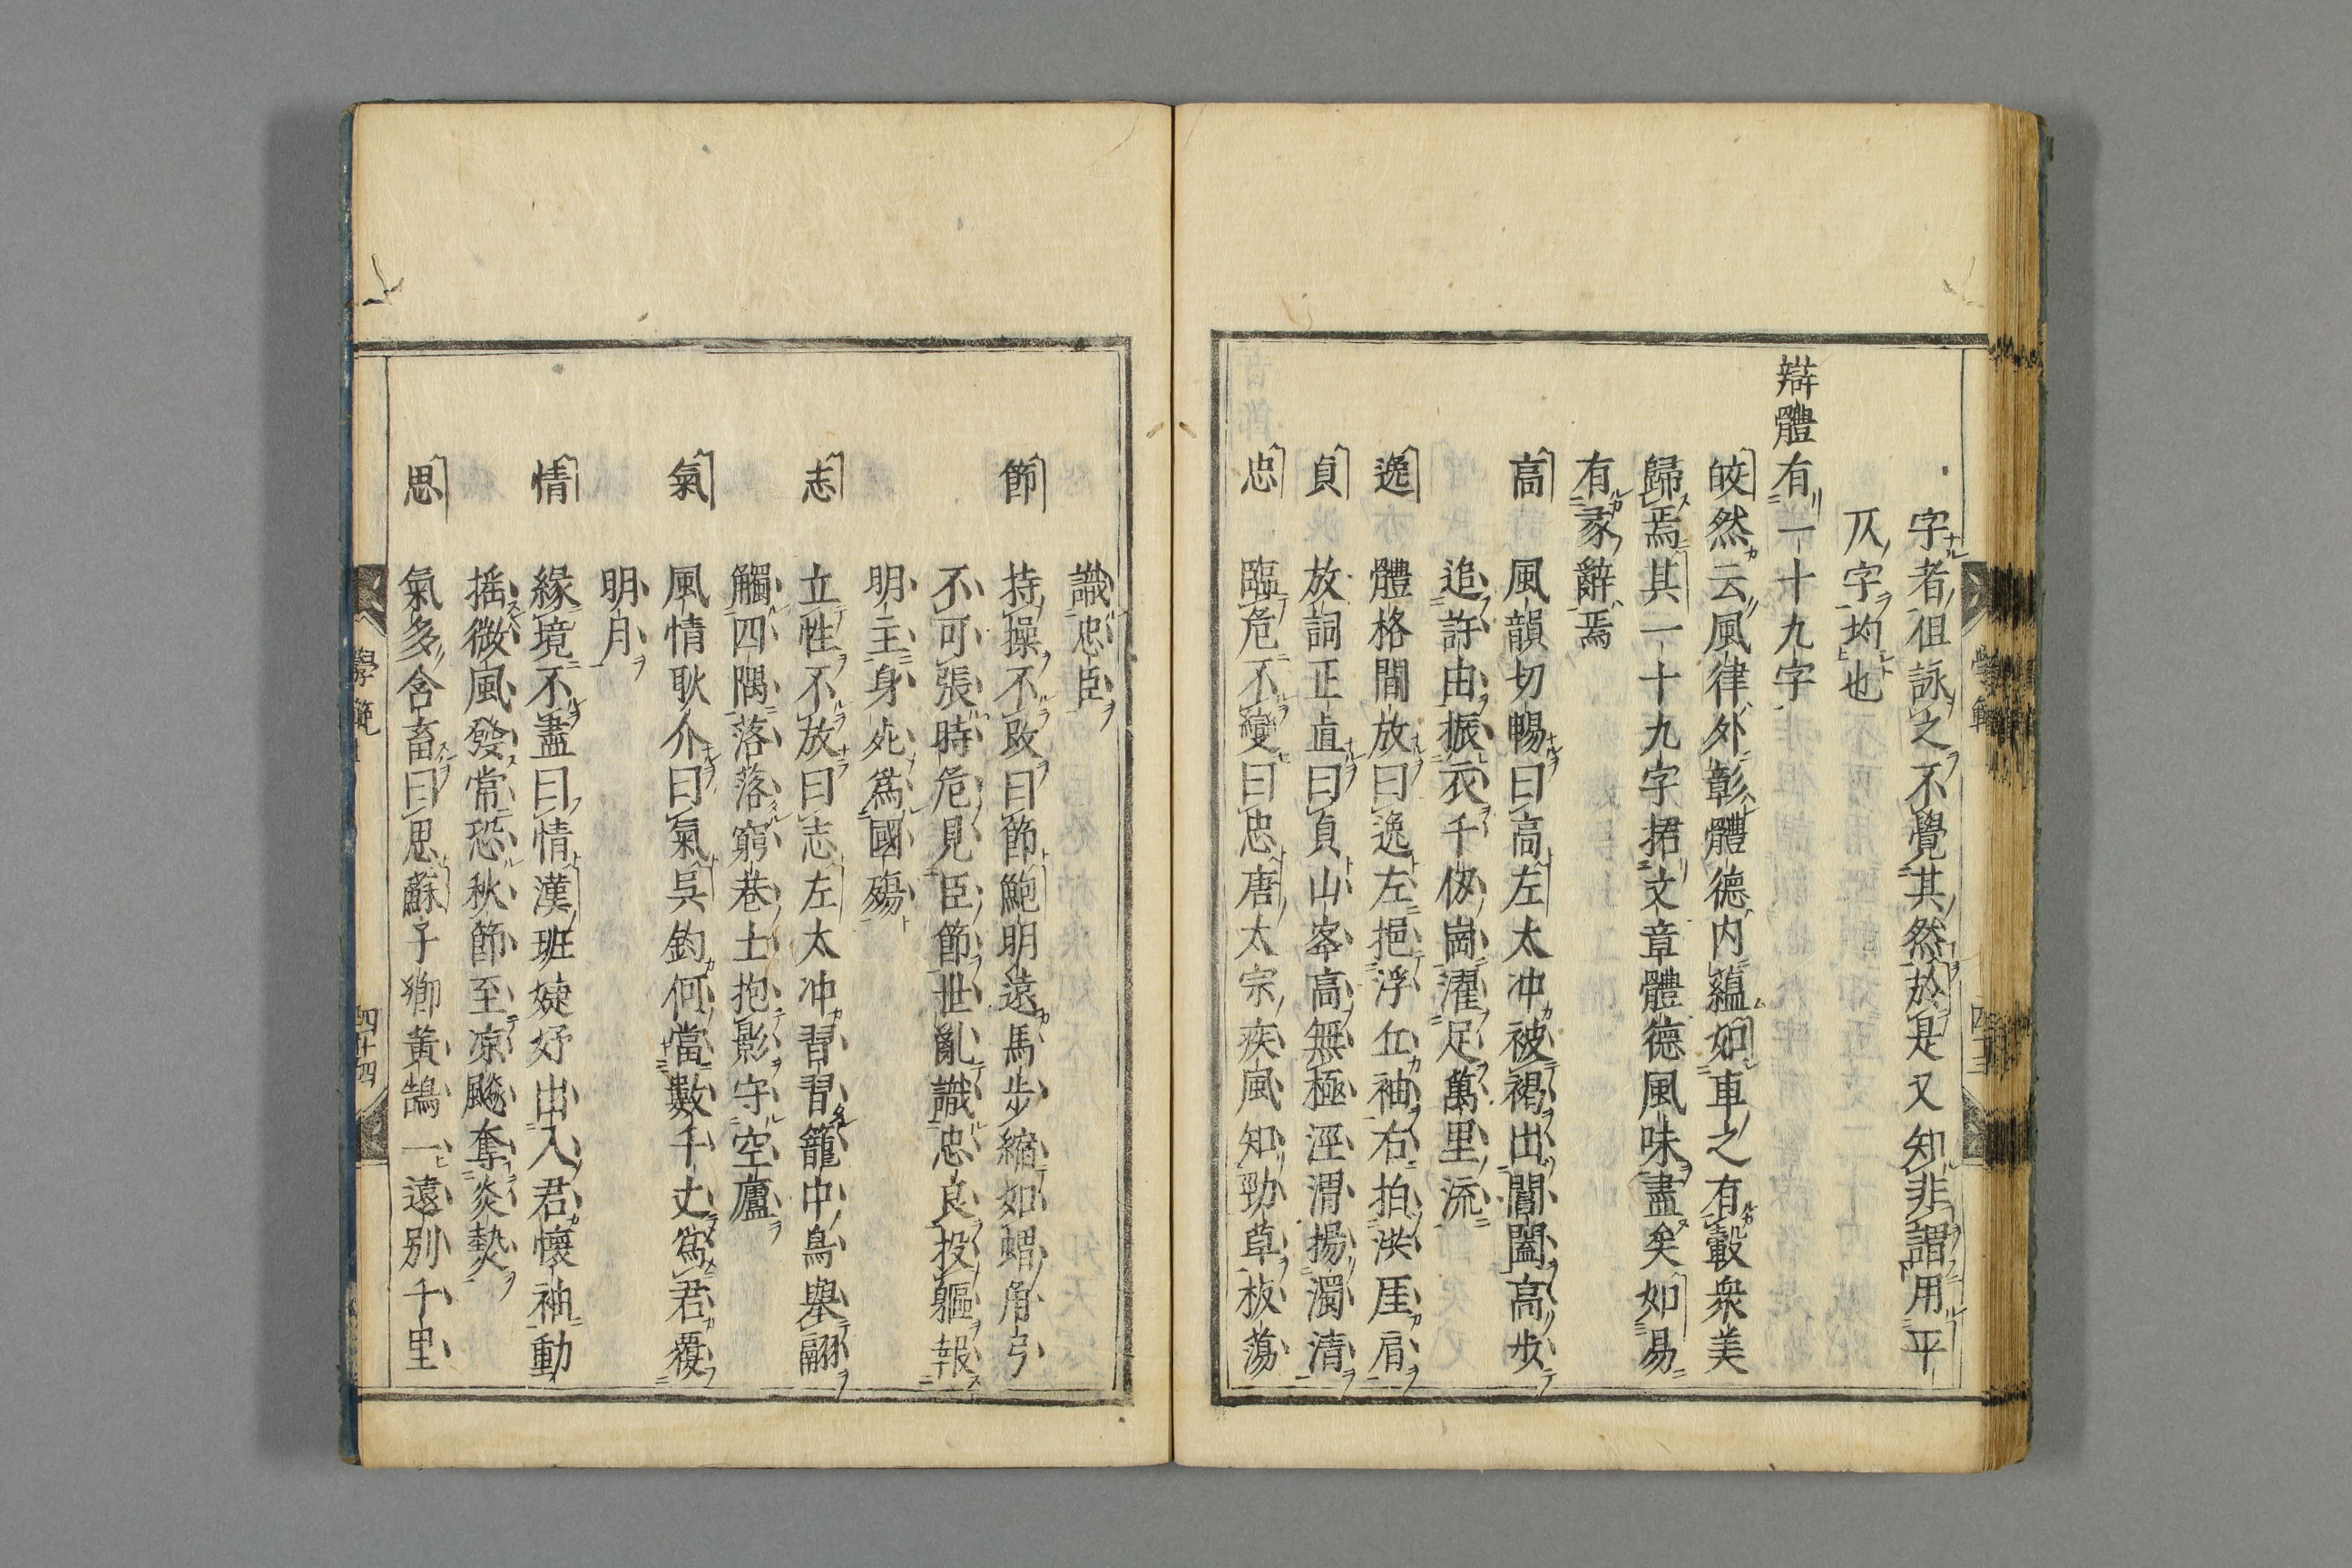 字者徂詠之不覺其然於是又知非謂用平
仄字均也
辯體有一十九字
皎然云風律外彰體德内蘊如車之有轂衆美
歸焉其一十九字捃文章體德風味盡矣如易
有彖辭焉
高 風韻切暢曰高左太冲被褐出閶闔高歩
追許由振衣千仭崗濯足萬里流
逸 體格閒放曰逸左挹浮丘袖右拍洪厓肩
貞 放詞正直曰貞山峯高無極涇渭揚濁清
忠 臨危不變曰忠唐太宗疾風知勁草板蕩
識忠臣
節 持操不改曰節鮑明遠馬歩縮如蝟角弓
不可張時危見臣節世亂識忠良投軀報
明主身死爲國殤
志 立性不放曰志左太冲習習籠中鳥擧翮
觸四隅落落窮巷士抱影守空廬
氣 風情耿介曰氣吳鈞何當數千丈爲君覆
明月
情 緣境不盡曰情漢班婕妤出入君懷袖動
揺微風發常恐秋節至凉飈奪炎𤍠
思 氣多含畜曰思蘇子卿黄鵠一遠別千里
學範
四十四
學範